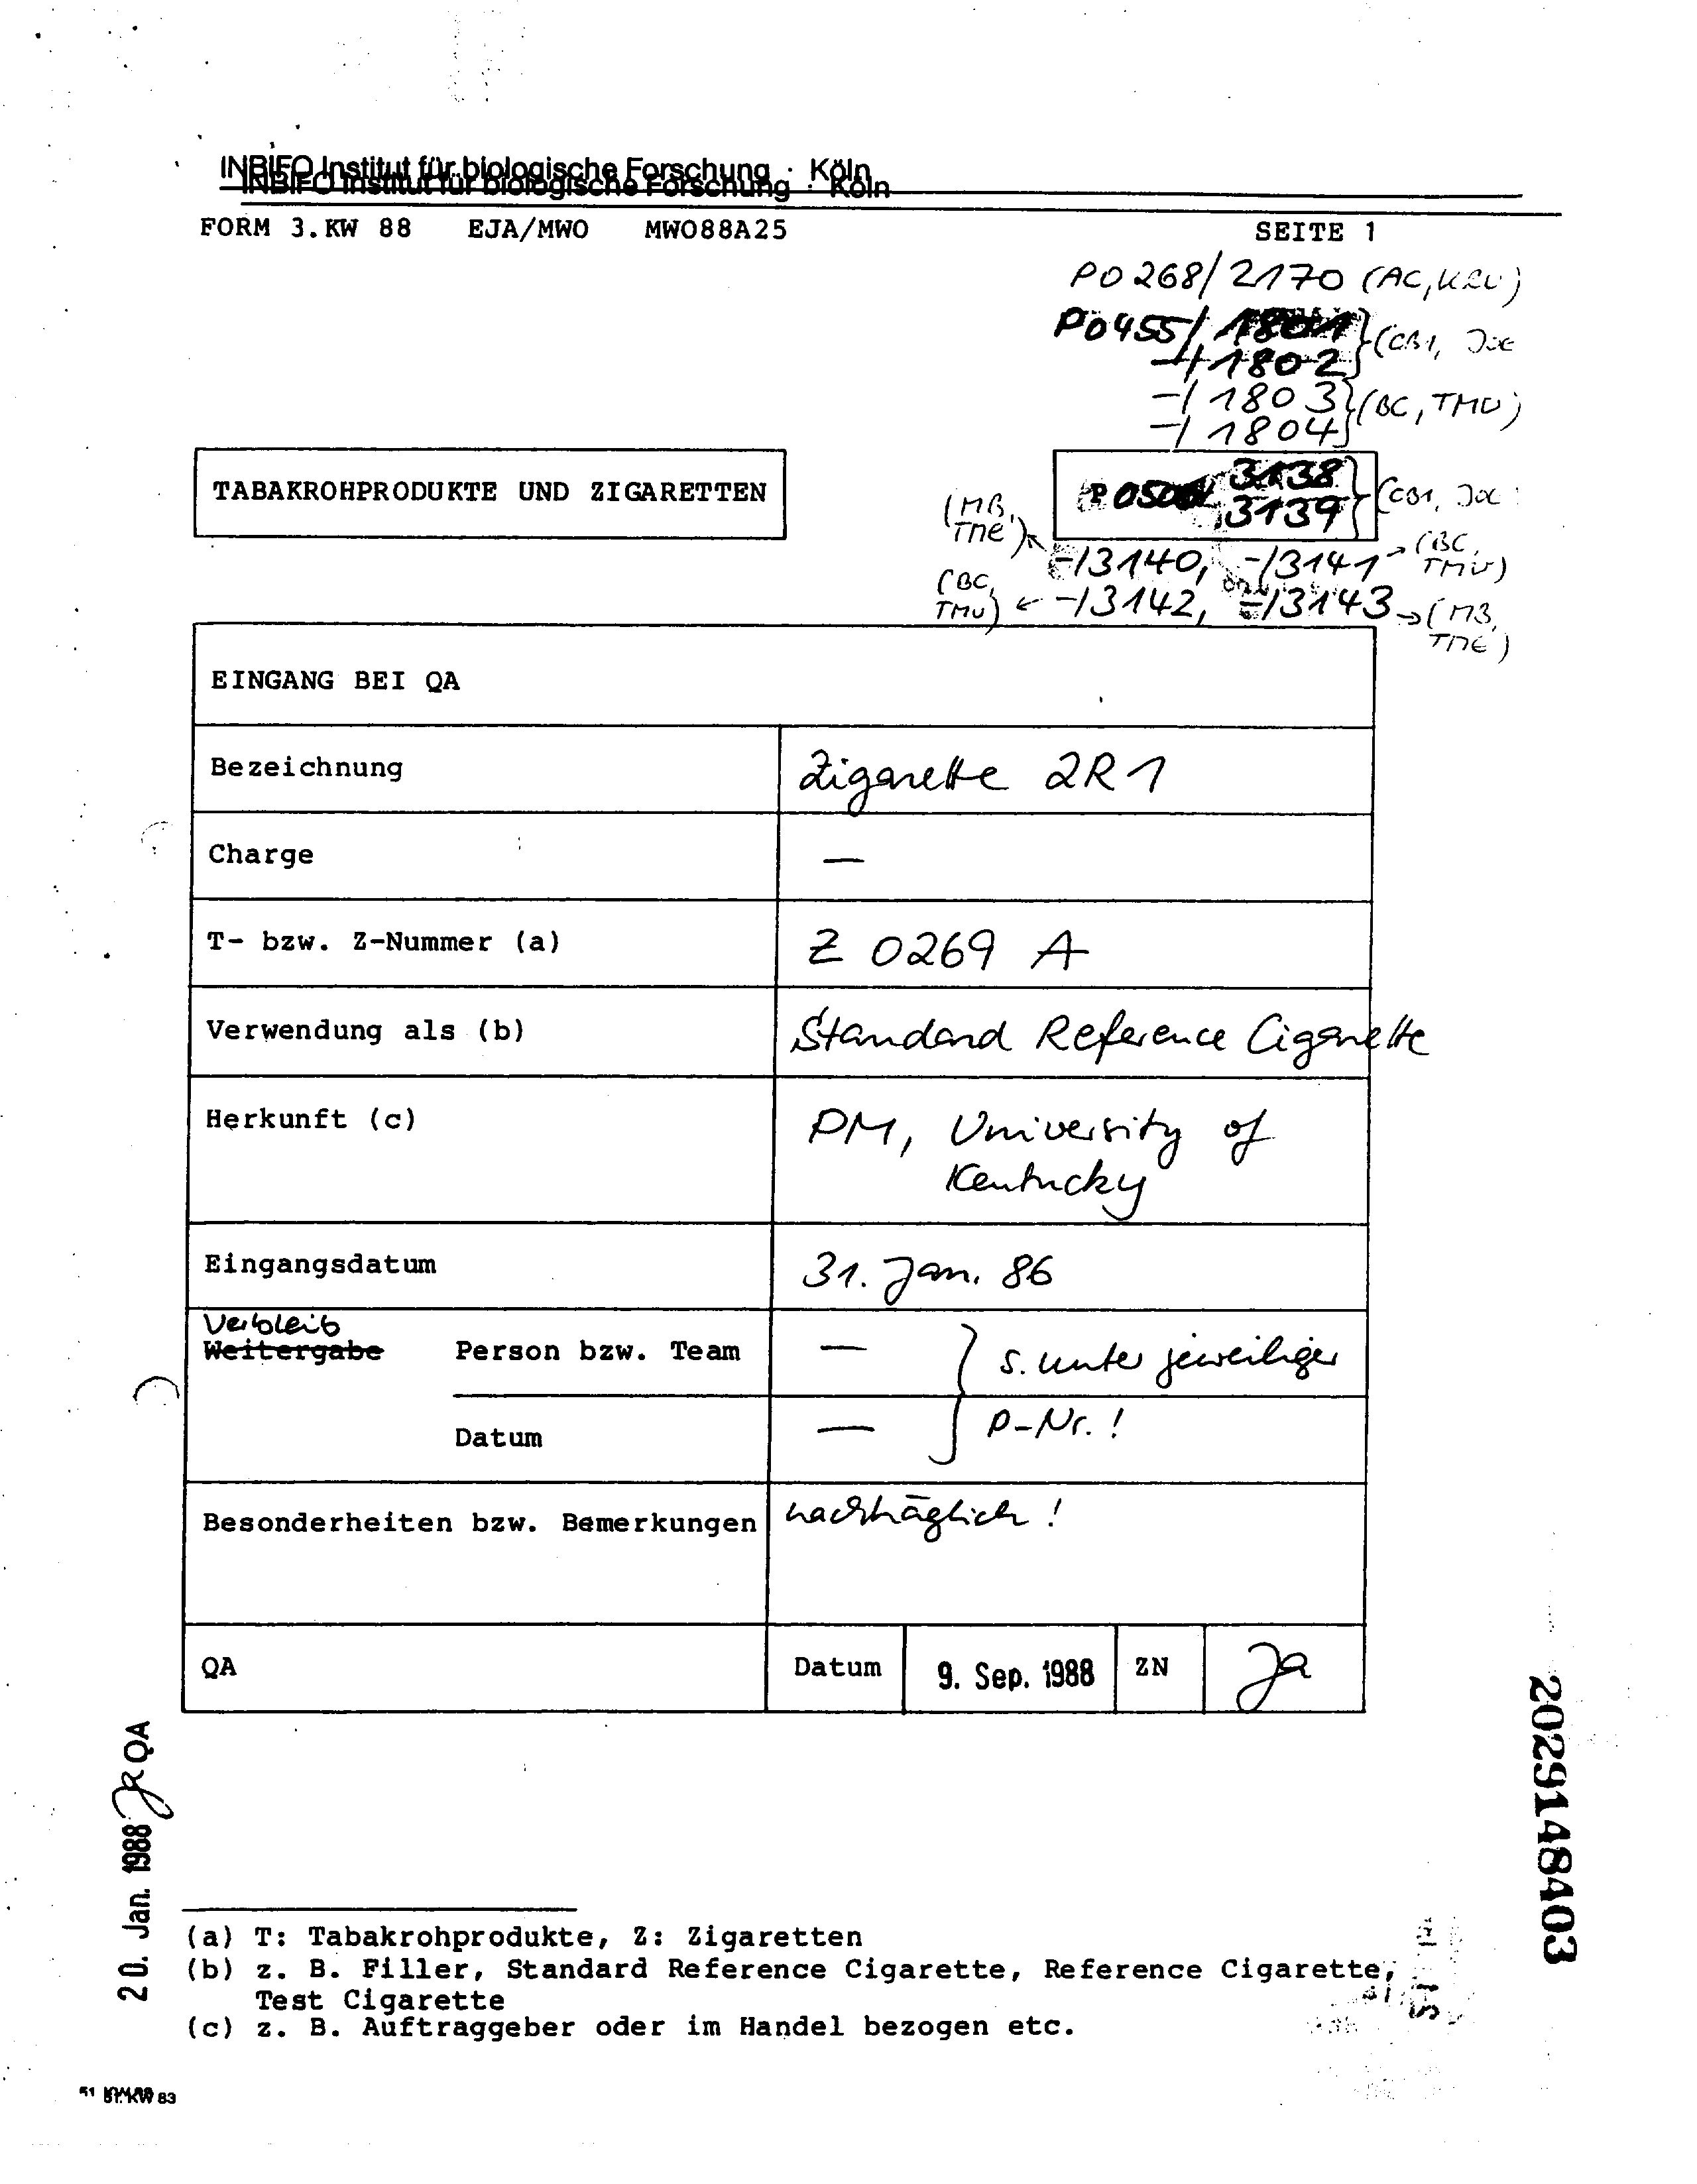 INBIFO Institut für biologische Forschung · Köln
INBIFO Institut für biologische Forschung · Köln
FORM 3.KW 88 EJA/MWO MWO88A25 SEITE 1
PO 268/2170 (AC,
P0455/1801
-/1802 } (CB1,
-/1803
-/1804 } (BC, TMU)
TABAKROHPRODUKTE UND ZIGARETTEN
P 0500/ 3138
3139 } (CB1,
(MB, TME) -/3140, -/3141 → (BC, TMU)
(BC, TMU) ← -/3142, -/3143 → (MB, TME)
EINGANG BEI QA
Bezeichnung Zigarette 2R1
Charge —
T- bzw. Z-Nummer (a) Z 0269 A
Verwendung als (b) Standard Reference Cigarette
Herkunft (c) PM, University of
Kentucky
Eingangsdatum 31. Jan. 86
Verbleib
Weitergabe Person bzw. Team — } s. unter jeweiliger
Datum — P-Nr.!
Besonderheiten bzw. Bemerkungen nachträglich!
QA Datum 9. Sep. 1988 ZN Ja
20. Jan. 1988 Ja QA
2029148403
(a) T: Tabakrohprodukte, Z: Zigaretten
(b) z. B. Filler, Standard Reference Cigarette, Reference Cigarette,
Test Cigarette
(c) z. B. Auftraggeber oder im Handel bezogen etc.